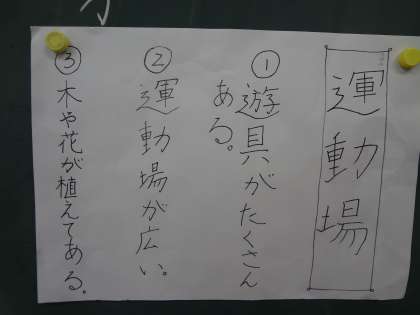 運動場
①遊具がたくさん
ある。
②運動場が広い。
③木や花が植えてある。